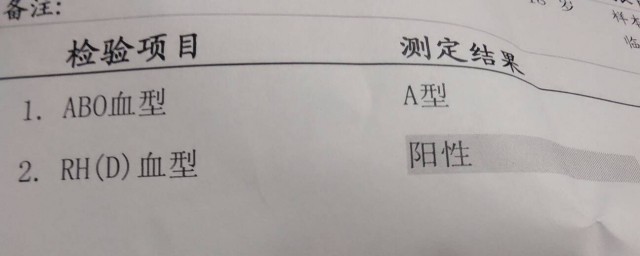 备注:
18 岁
检验项目 测定结果
1. ABO血型 A型
2. RH(D)血型 阳性